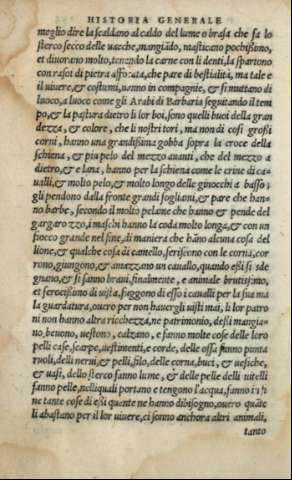 HISTORIA GENERALE
meglio dire la scaldano al caldo del lume o brasa che fa lo
sterco secco delle uacche, mangiādo, masticano pochissimo,
et diuorano molto, tenendo la carne con li denti, la spartono
con rasoi di pietra afforata, che pare di bestialità, ma tale e
il uiuere, & costumi, uanno in compagnie, & si muttano di
luoco, a luoco come gli Arabi di Barbaria seguitando il tem
po, & la pastura dietro li lor boi, sono quelli buoi della gran
dezza, & colore, che li nostri tori, ma non di cosi grossi
corni, hanno una grandissima gobba sopra la croce della
schiena, & piu pelo del mezzo auanti, che del mezzo a
dietro, & e lana, hanno per la schiena come le crine di ca-
ualli, & molto pelo, & molto longo delle ginocchi a basso;
gli pendono dalla fronte grandi fogliami, & pare che han-
no barbe, secondo il molto pelame che hanno & pende del
gargarozzo, i maschi hanno la coda molto longa, & con un
fiocco grande nel fine, di maniera che hāno alcuna cosa del
lione, & qualche cosa di camello, feriscono con le corna, cor
rono, giungono, & amazzano un cauallo, quando essi si sde
gnano, & si fanno braui, finalmente, e animale bruttissimo,
et ferocissimo di uista, fuggono di esso i caualli per la sua ma
la guardatura, ouero per non hauergli uisti mai, li lor patro
ni non hanno altra ricchezza, ne patrimonio, dessi mangia-
no, beueno, uestono, calzano, e fanno molte cose delle loro
pelli case, scarpe, uestimenti, e corde, delle ossa fanno ponta
ruoli, delli nerui, & pelli, filo, delle corna, buci, & uesiche,
& uasi, dello sterco fanno lume, & delle pelle delli uitelli
fanno pelle, nelliquali portano e tengono l'acqua, fanno i si
ne tante cose di essi quante ne hanno dibisogno, ouero quāte
li abastano per il lor uiuere, ci sonno anchora altri animali,
tanto